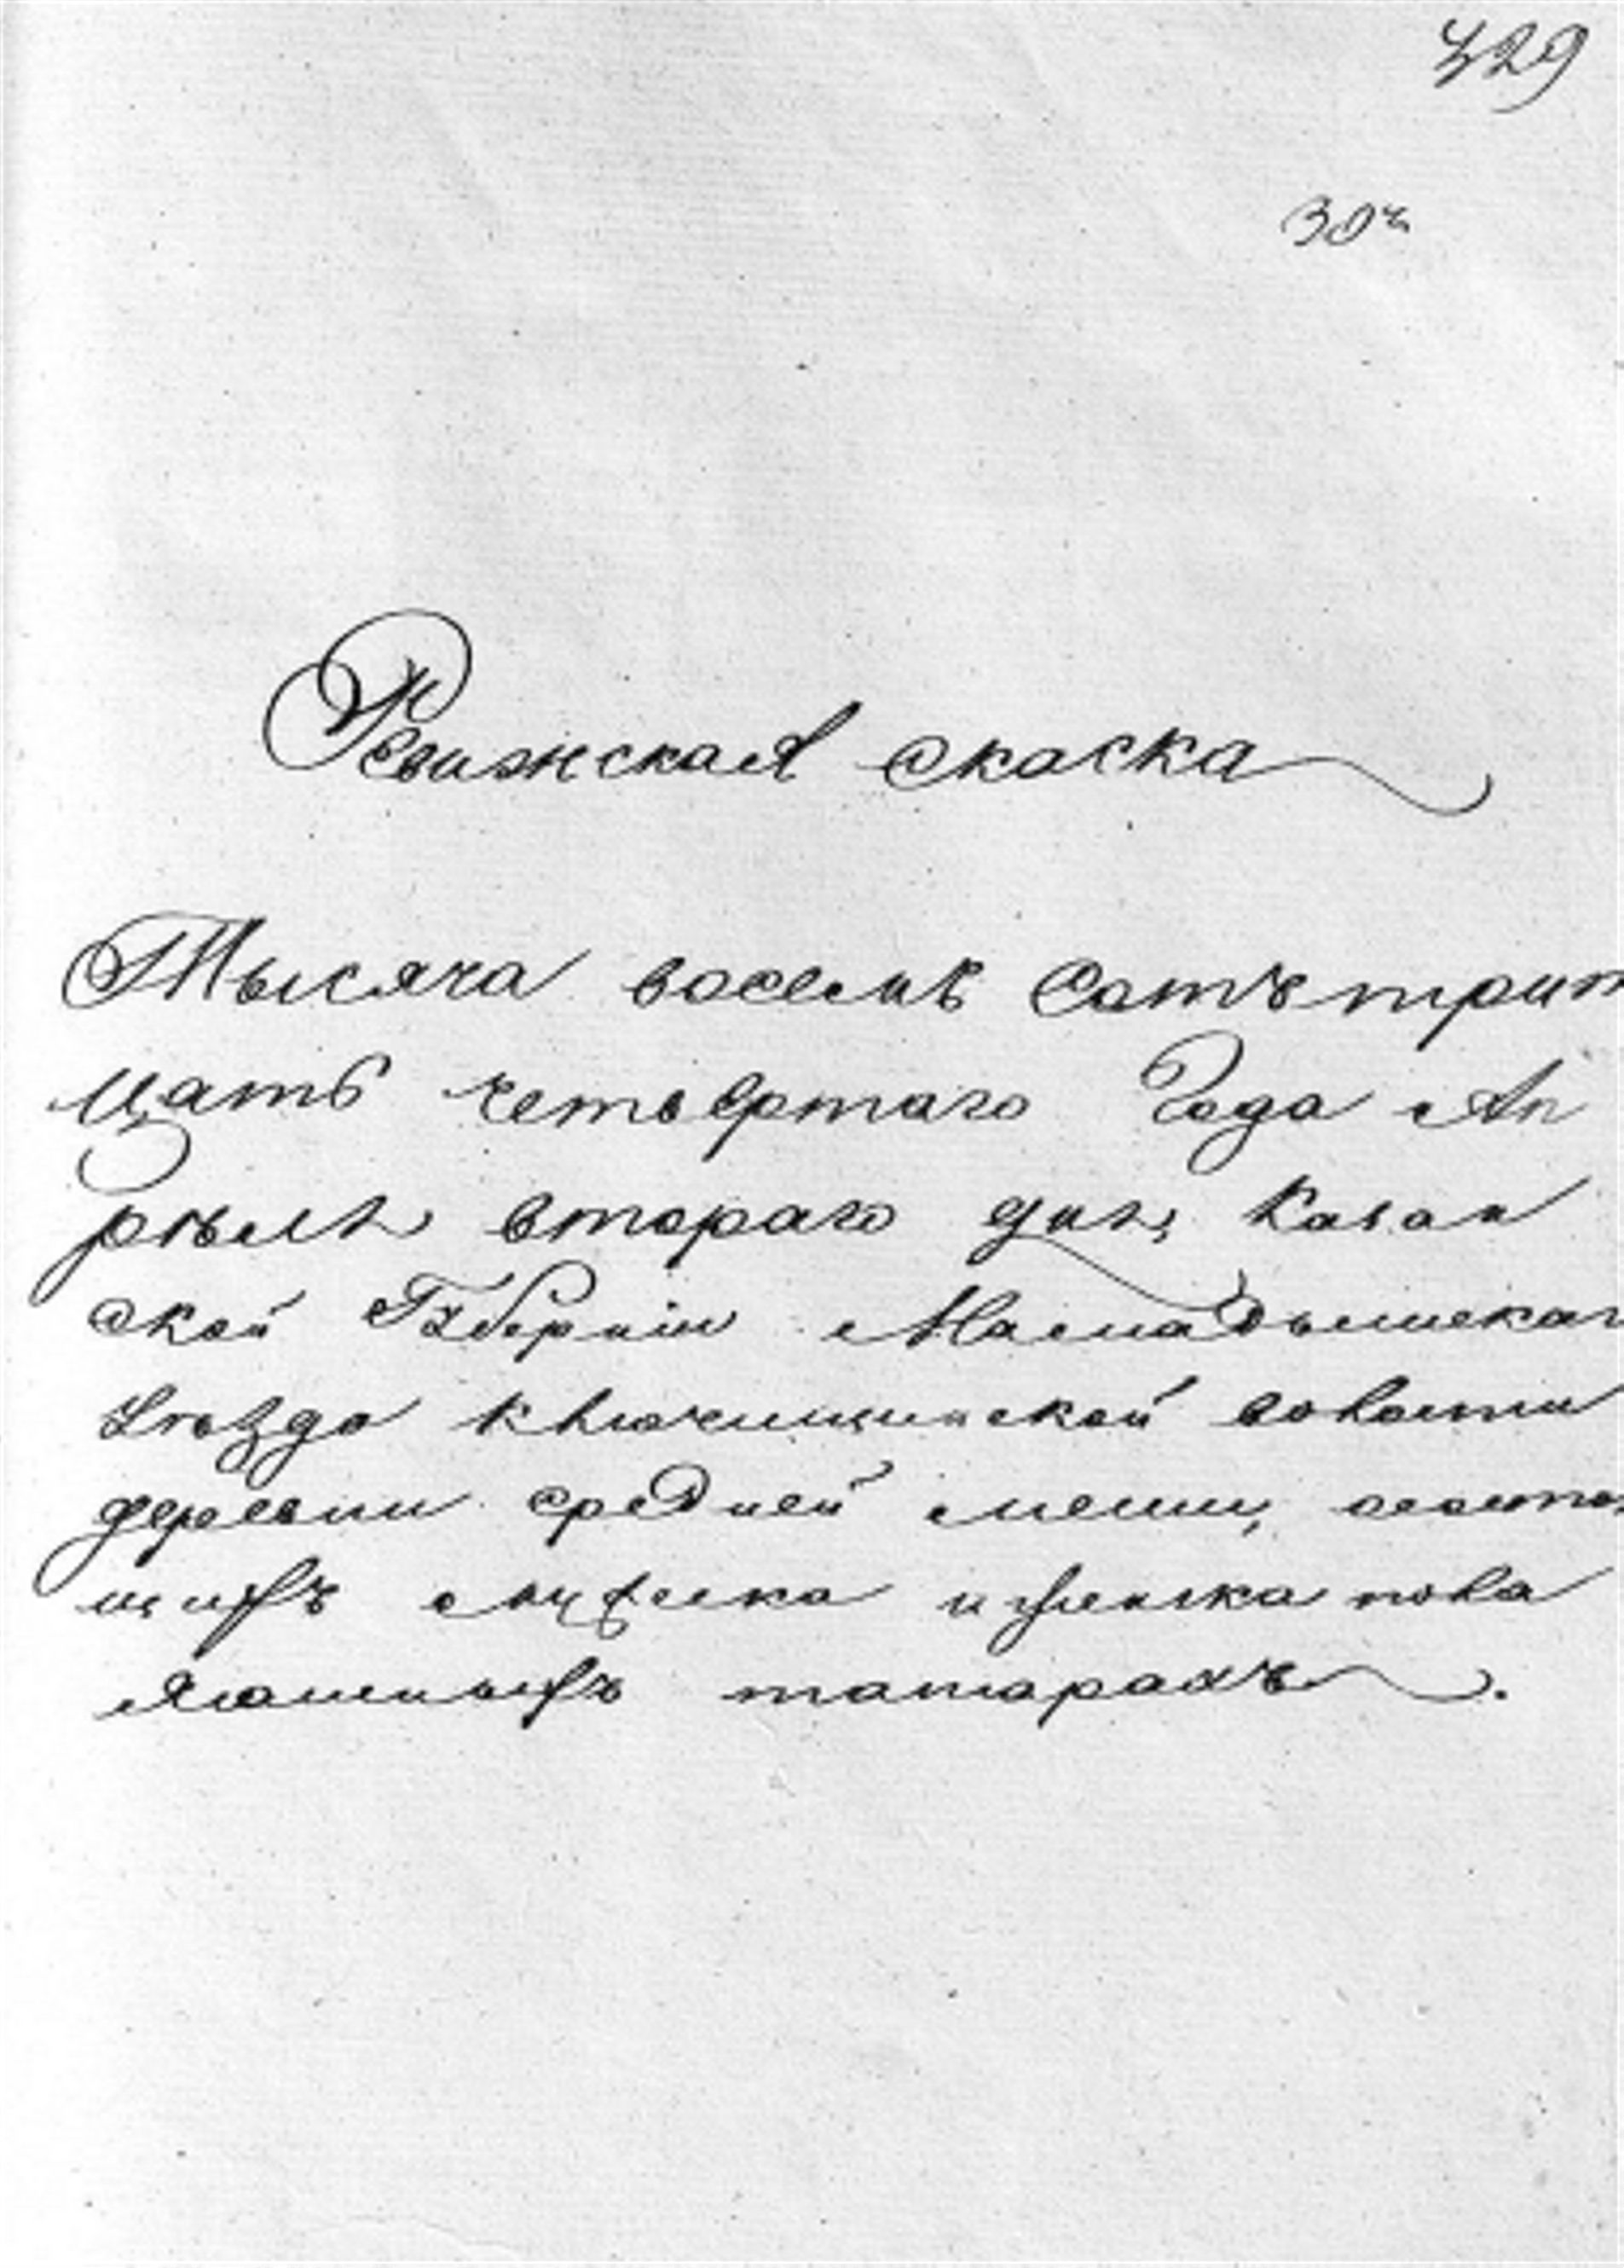 429
30
Ревижская скаска
Тысяча восемь сотъ трит
цать четвертаго Года Ап
рѣля втораго дня, Казан
ской Губерніи Мамадышскаг
Уѣзда Ключищинской волости
деревни средней меши, состоя
щихъ мужеска и женска пола
ясашныхъ татарахъ.